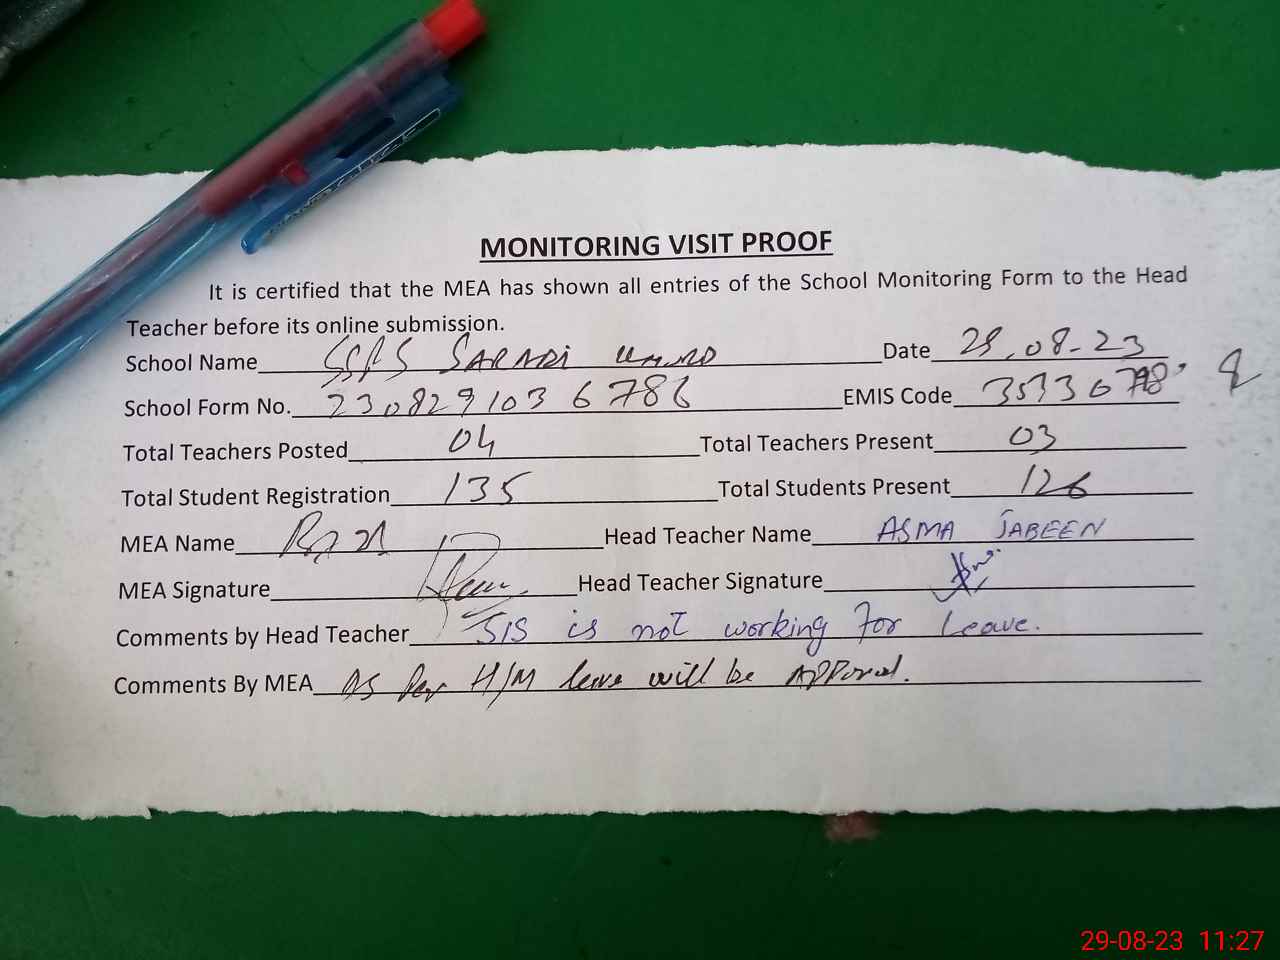 MONITORING VISIT PROOF
It is certified that the MEA has shown all entries of the School Monitoring Form to the Head
Teacher before its online submission.
School Name Date 29.08-23
School Form No. 2308291036786 EMIS Code
Total Teachers Posted 04 Total Teachers Present 03
Total Student Registration 135 Total Students Present 126
MEA Name Head Teacher Name ASMA JABEEN
MEA Signature Head Teacher Signature
Comments by Head Teacher SIS is not working for Leave.
Comments By MEA As Per H/M leave will be
29-08-23 11:27